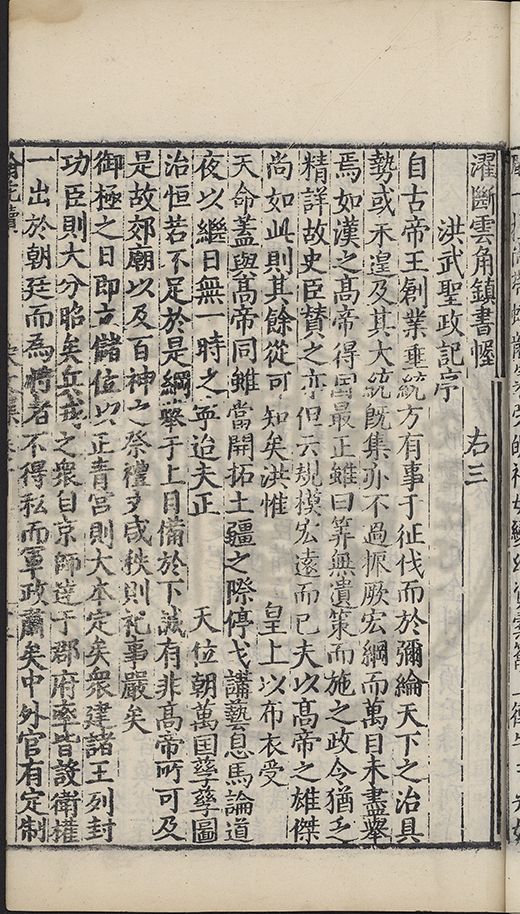 濯斷雲角鎮書幄　右三
洪武聖政記序
自古帝王創業垂統方有事于征伐而於彌綸天下之治具
勢或未遑及其大統旣集亦不過振厥宏綱而萬目未盡舉
焉如漢之髙帝得国最正雖曰筭無遺策而施之政令猶乏
精詳故史臣賛之亦但云規模宏遠而已夫以髙帝之雄傑
尚如此則其餘從可知矣洪惟　皇上以布衣受
天命蓋與髙帝同雖當開拓土疆之際停戈講藝息馬論道
夜以継日無一時之寧迨夫正　天位朝萬国孳孳圖
治恒若不足於是綱舉于上目備於下誠有非髙帝所可及
是故郊廟以及百神之祭禮才咸秩則祀事嚴矣
御極之日即立儲位以正青宮則大本定矣衆建諸王列封
功臣則大分昭矣兵戎之衆自京師達于郡府率皆設衛擢
一出於朝廷而為将者不得私而軍政肅矣中外官有定制